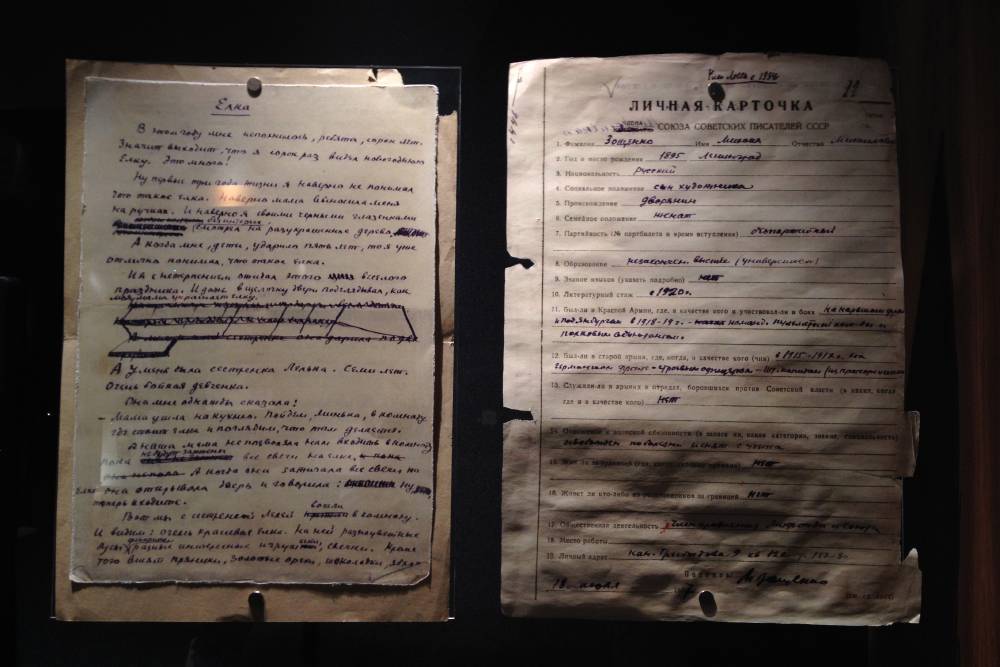 Елка
В этом году мне исполнилось, ребята, сорок лет.
Значит выходит, что я сорок раз видел новогоднюю
елку. Это много!
Ну первые три года жизни я наверно не понимал
что такое елка. Наверно мама выносила меня
на ручках. И наверно я своими черными глазенками
без интереса
смотрел на разукрашенное дерево
А когда мне, дети, ударило пять лет, то я уже
отлично понимал, что такое елка.
И я с нетерпением ожидал этого веселого
праздника. И даже в щелочку двери подглядывал, как
моя мама украшает елку.
А у меня была сестренка Леля. Семи лет.
Очень бойкая девченка.
Она мне однажды сказала:
– Мама ушла на кухню. Пойдем, Минька, в комнату
где стоит елка и поглядим, что там делается.
А наша мама не позволяла нам входить в комнату
пока не будут зажжены все свечи на елке
А когда она зажигала все свечи, то
она открывала дверь и говорила: Ну,
теперь входите.
вошли
Вот мы с сестренкой Лелей в комнату.
И видим: очень красивая елка. На ней разноцветные
бусы, флажки, свечки. Кроме
того висят пряники, золотые орехи, шоколадки, яблоки
29
ЛИЧНАЯ КАРТОЧКА
СОЮЗА СОВЕТСКИХ ПИСАТЕЛЕЙ СССР
1. Фамилия Зощенко Имя Михаил Отчество Михайлович
2. Год и место рождения 1895 Ленинград
3. Национальность русский
4. Социальное положение сын художника
5. Происхождение дворянин
6. Семейное положение женат
7. Партийность (№ партбилета и время вступления) безпартийный
8. Образование незаконч. высшее (университет)
9. Знание языков (указать подробно) нет
10. Литературный стаж с 1920 г.
11. Был-ли в Красной Армии, где, в качестве кого и участвовал-ли в боях на нарвском фр.
и под Ямбургом в 1918-19 г.
полковым адъютантом.
12. Был-ли в старой армии, где, когда, в качестве кого (чин) в 1915-1917 г. на
германском фронте
13. Служил-ли в армиях и отрядах, боровшихся против Советской власти (в каких, когда
где и в качестве кого) нет
14. Отношение к воинской обязанности (в запасе ли, какая категория, звание, специальность)
освобожден по болезни и снят с учета
15. Жил ли заграницей нет
16. Живет ли кто-либо из родственников за границей нет
17. Общественная деятельность
18. Место работы
19. Личный адрес кан. Грибоедова 9 кв
18. июля М. Зощенко